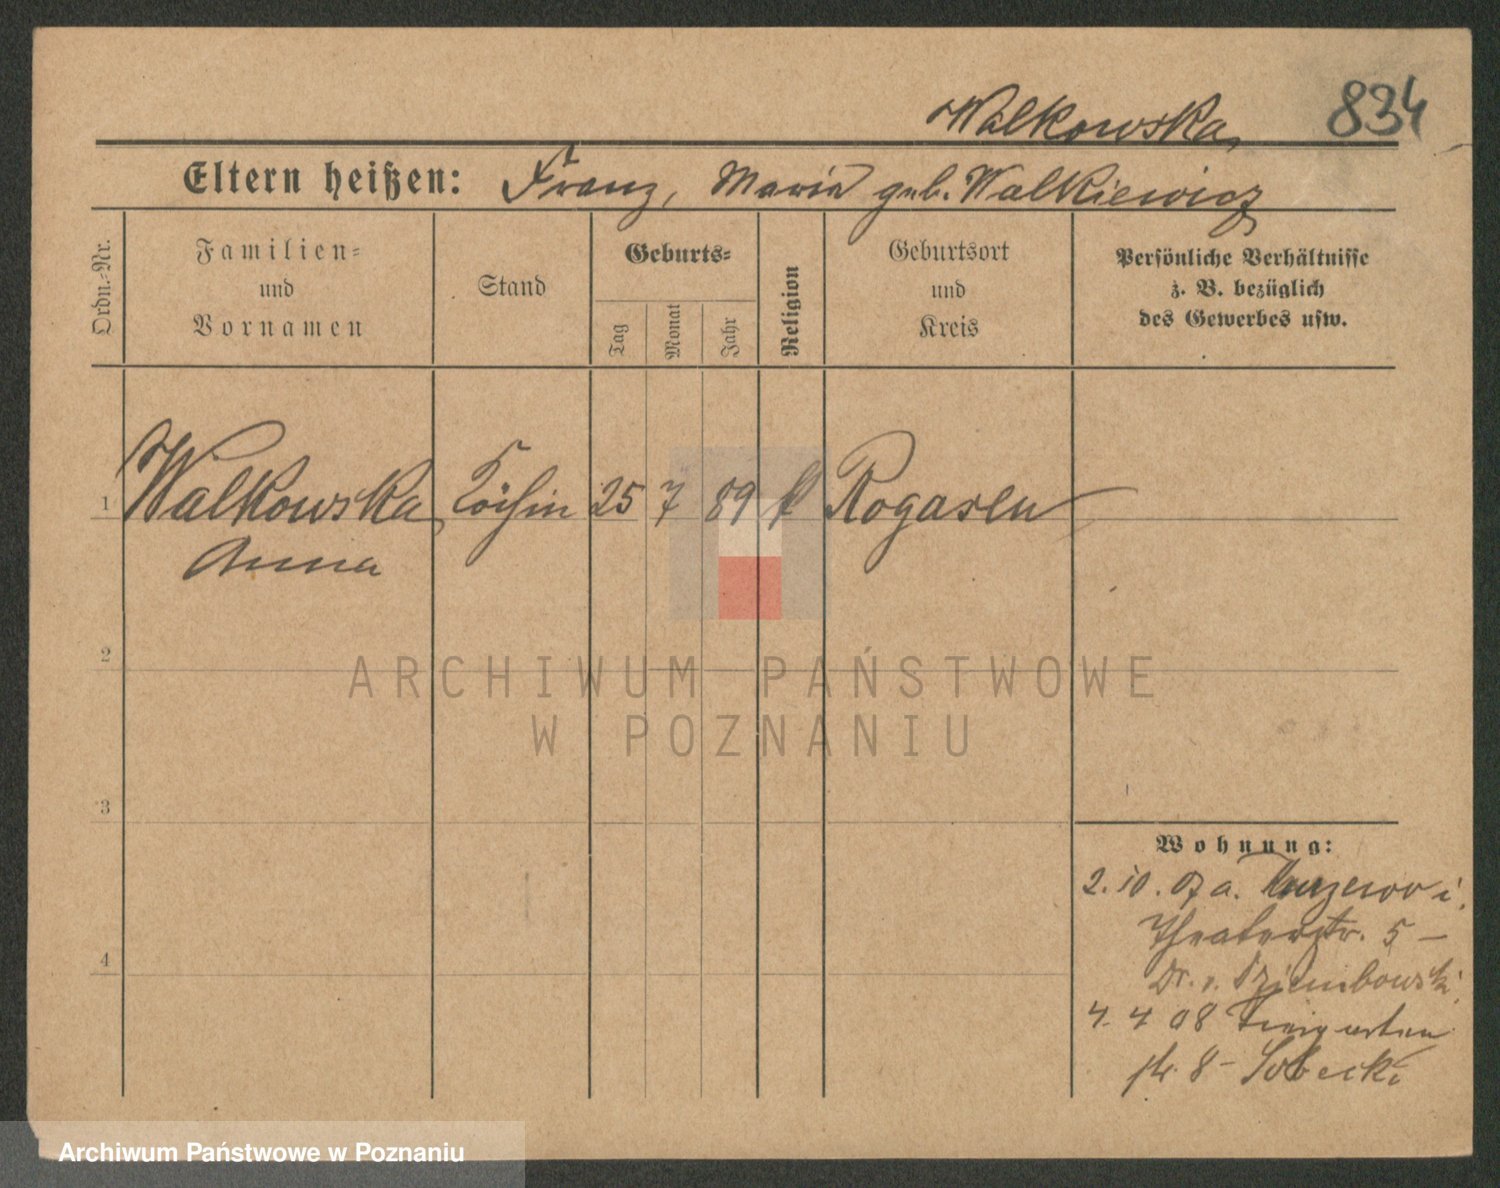 Walkowska, 834
Eltern heißen: Franz, Maria geb. Walkiewicz
Ordn.-Nr.
Familien-
und
Vornamen
Stand
Geburts-
Tag
Monat
Jahr
Religion
Geburtsort
und
Kreis
Persönliche Verhältnisse
z. B. bezüglich
des Gewerbes usw.
1 Walkowska Köchin 25 7 89 k Rogasen
Anna
2
3
4
Wohnung:
2. 10. 07 a.
Theaterstr. 5 –
Dr. v. Dziembowski
4. 4 08 Tiergarten
str 8 – Sobecki
ARCHIWUM PAŃSTWOWE
W POZNANIU
Archiwum Państwowe w Poznaniu